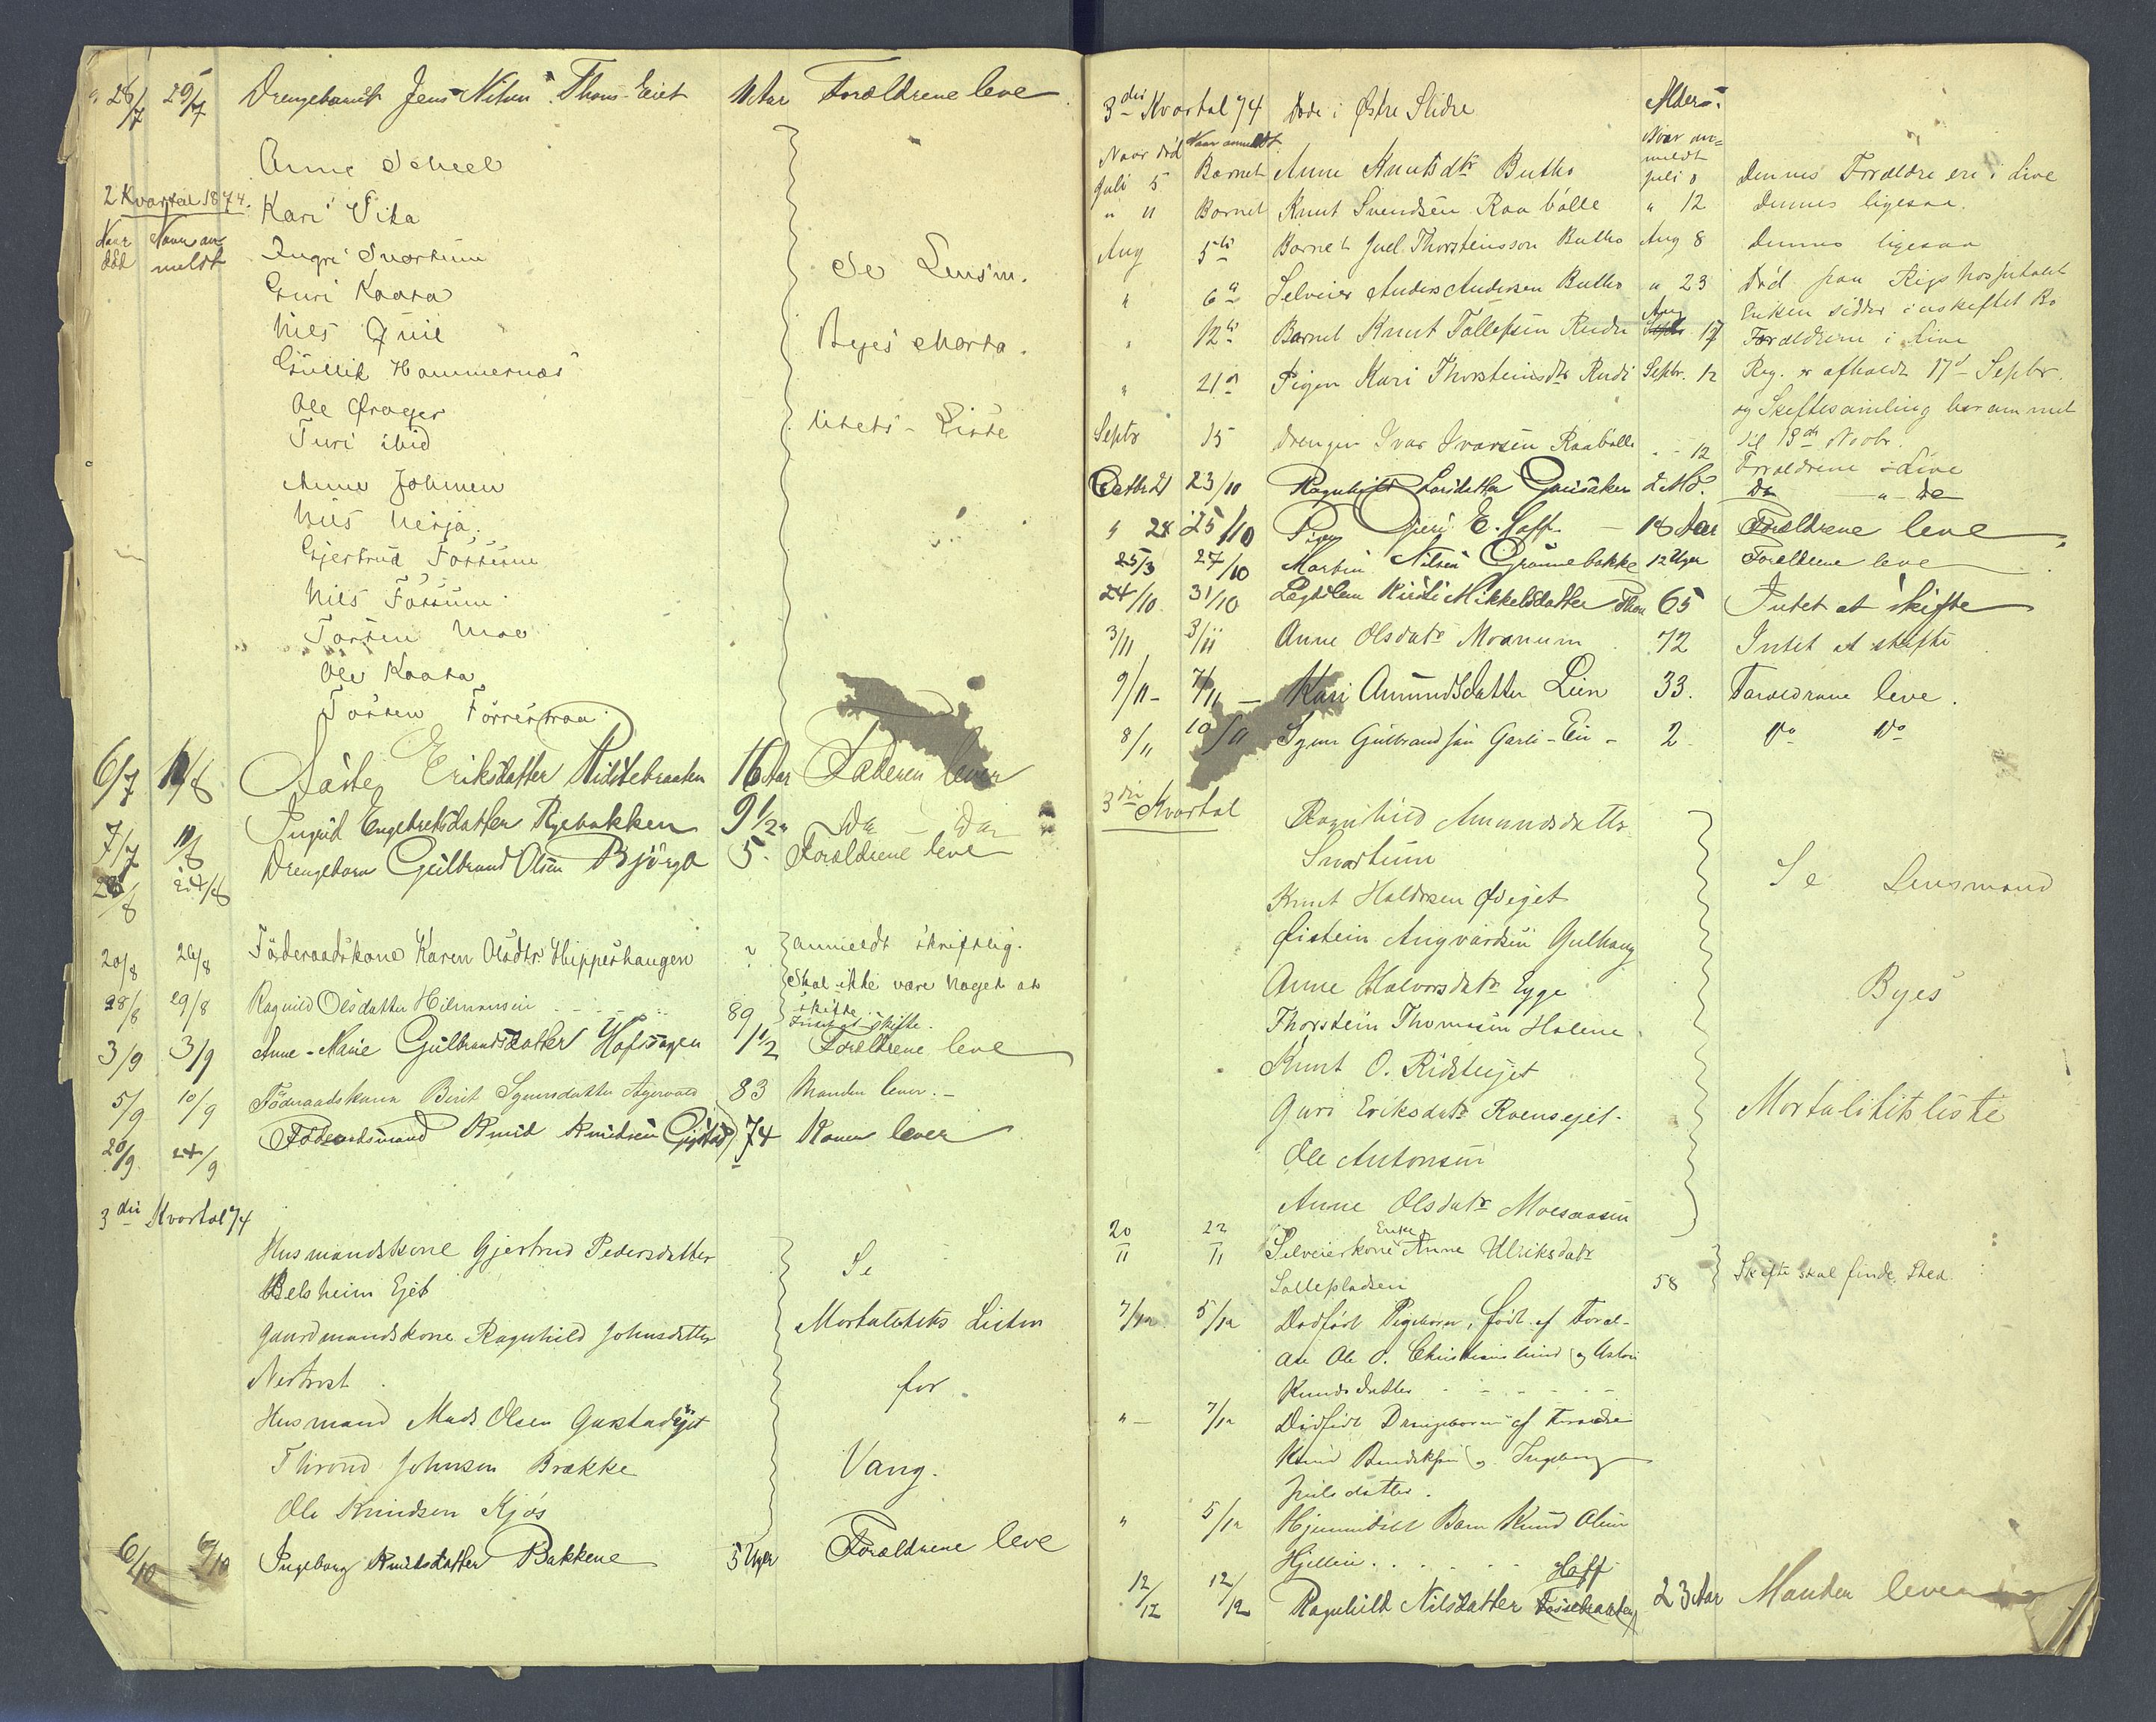 26/7 29/7 Drengebarnet Jens Nilsen Thoms-Eiet 11 Aar Forældrene leve
Anne Scheel
2 Kvartal 1874. Kari Vika
Naar død Naar anmeldt Ingri Snortum Se Lensm.
Guri Kaata
Nils Qvie Byes Morta-
Gullik Hammernæs
Ole Ørager litets-Liste
Turi ibid
Anne Johnsen
Nils Nesja.
Gjertrud Fossum
Nils Fossum
Torsten Moe
Ole Kaata
Tosten Førrestraa
6/7 10/8 Aaste Eriksdatter Ridstebraaten 16 Aar Faderen lever
7/7 11/8 Ingrid Engebretsdatter Ryebakken 9 1/2 " Do Do
23/8 24/8 Drengebarn Gulbrand Olsen Bjørgo 5. Forældrene leve
20/8 26/8 Føderaadskone Karen Olsdtr Hippeshaugen ? anmeldt skriftlig.
Skal ikke være noget at skifte
28/8 29/8 Ragnild Olsdatter Hilmensein 89 Intet at skifte.
3/9 3/9 Anne-Marie Gulbrandsdatter Hofslagen 1 1/2 Forældrene leve
5/9 10/9 Føderaadskone Birit Syversdatter 83 Manden lever.-
20/9 24/9 Føderaadsmand Knud Knudsen Gigstad 74 Konen lever
3die Kvartal 74
Husmandskone Gjertrud Pedersdatter Se
Belsheim Ejet
Gaardmandskone Ragnhild Johnsdatter Mortalitets Listen
Nestrost for
Husmand Mads Olsen Gaxstadejet
Thrond Johnsen Brække Vang.
Ole Knudsen Kjøs
6/10 6/10 Ingeborg Knudsdatter Bakkene 5 Uger Forældrene leve
3die Kvartal 74 Døde i Østre Slidre Alder.
Naar død Naar anmeldt Naar anmeldt
Juli 5 Barnet Anne Knutsdtr Butho Juli 8 Dennes Forældre eri i Live
" 11 Barnet Knut Svendsen Raabølle " 12 Dennes ligesaa.
Aug 5te Barnet Juel Thorsteinsson Butho Aug 8 Dennes ligesaa
" 6te Selveier Anders Andersen Butho " 23 Død paa Rigshospitalet
Enken sidder i uskiftet Bo
" 12te Barnet Knut Tollefsen Rudi Aug 17 Forældrene i Live
" 21de Pigen Kari Thorsteinsdtr Rudi Septbr. 12 Reg. er afholdt 17de Septbr.
og Skiftesamling berammet
til 13de Novbr.
Septr 15 Drengen Ivar Ivarsen Raabølle " - 12 Forældrene i Live
Octbr 21 23/10 Ragnhild Larsdatter Gausaker 2 Md. Do " Do
" 24 25/10 Pigen Guri E. Hoff 18 Aar Forældrene leve
25/3 27/10 Martin Nilsen Grønnebakke 12 Uger Forældrene leve
24/10 31/10 Lægdslem Kirsti Mikkelsdatter Thon 65 Intet at skifte
3/11 3/11 Anne Olsdatr Moanum 72 Intet at skifte
9/11 - 7/11 - Kari Amundsdatter Lien 33. Forældrene leve.
8/11 10/11 Syver Gulbrandsen Garli-Eie - 2 Do Do
3die Kvartal Ragnhild Amundsdatter
Snortum Se Lensmand
Knut Haldorsen Ødejet
Øistein Angvardsen Gulhaug
Anne Halvorsdatr Eyge Byes
Thorstein Thomasen Halene
Knut O. Ridstejet
Guri Eriksdatr Roensejet. Mortalitetsliste
Ole Antonsen
Anne Olsdatr Moesaasen
20/11 22/11 Selveierkone Enke Anne Ulriksdatr
Sollepladsen 58 Skifte skal finde Sted
7/12 5/12 Dødfødt Pigebarn, født af Foræl-
dre Ole O. Christianslund og Astri
Knudsdatter
" - 7/12 Dødfødt Drengebarn af Forældre
Knud Bendiksen og Ingeborg
Juilsdatter.
" 5/12 Hjemmedøbt Barn Knud Olsen
Hjellein. . . . .
12/12 12/12 Ragnhild Nilsdatter Fossebraaten Hoff 23 Aar Manden lever